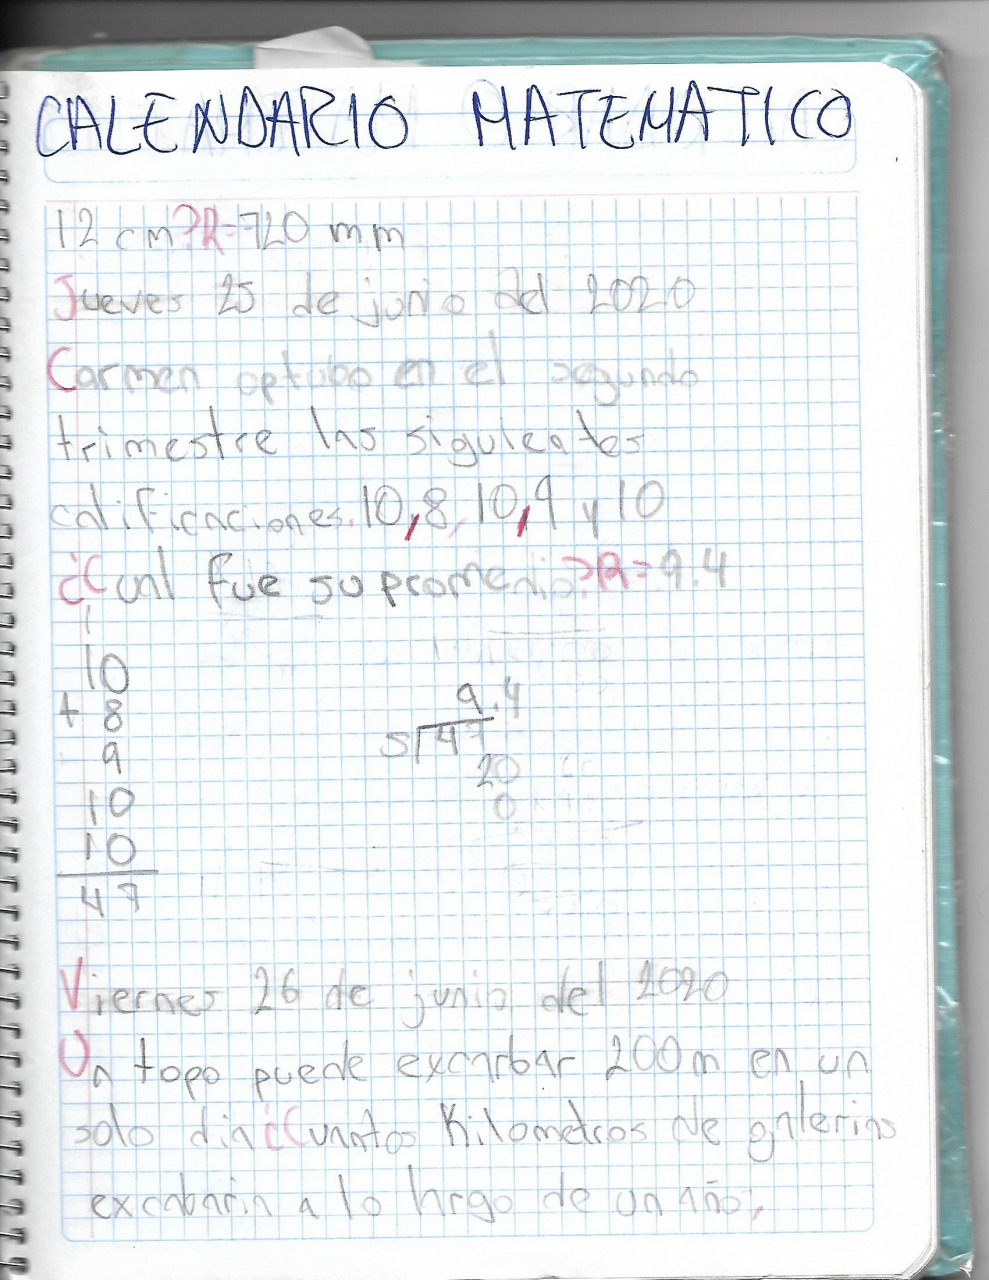 CALENDARIO MATEMATICO
12 cm?R=720 mm
Jueves 25 de junio del 2020
Carmen optubo en el segundo
trimestre las siguientes
calificaciones.10,8,10,9 y 10
¿Cual fue su promedio?R=9.4
1
10
+ 8
9
10
10
47
9.4
5 47
20
0
Viernes 26 de junio del 2020
Un topo puede excarbar 200m en un
solo dia¿Cuantos Kilometros de galerias
excabaria a lo largo de un año,